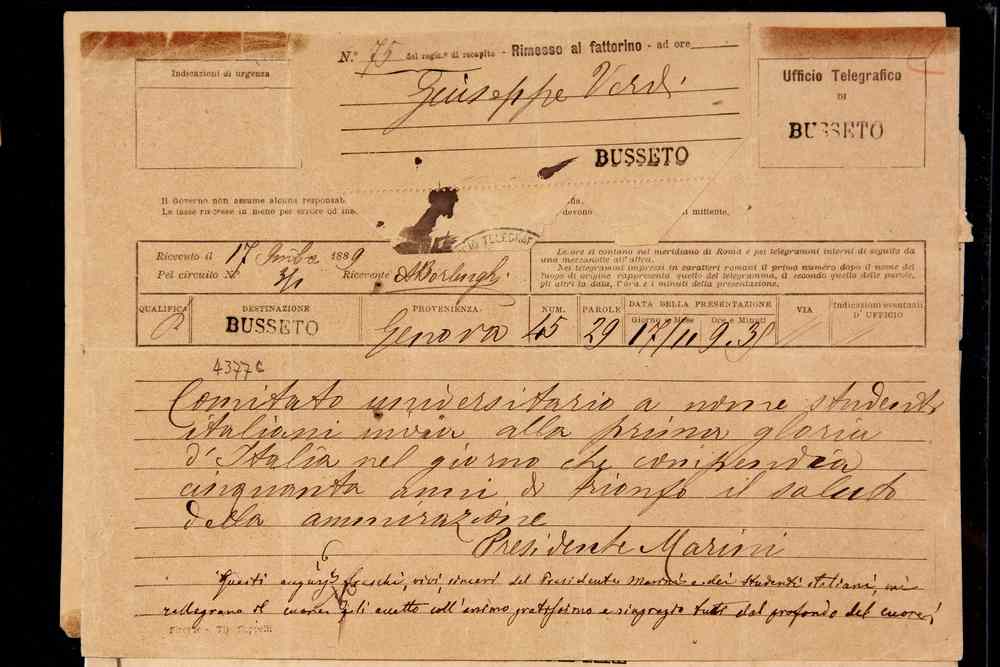 N.° 75 del regis.° di recapito - Rimesso al fattorino - ad ore
Indicazioni di urgenza
Giuseppe Verdi
Ufficio Telegrafico
DI
BUSSETO
BUSSETO
Il Governo non assume alcuna responsab
Le tasse riscosse in meno per errore od ina
devono
mittente,
Ricevuto il 17 9mbre 1889
Pel circuito N° 3/1 Ricevente
TELEGRAF
Le ore si contano sul meridiano di Roma e pei telegrammi interni di seguito da
una mezzanotte all'altra.
Nei telegrammi impressi in caratteri romani il primo numero dopo il nome del
luogo di origine rappresenta quello del telegramma, il secondo quello delle parole,
gli altri la data, l'ora e i minuti della presentazione.
QUALIFICA
DESTINAZIONE
BUSSETO
PROVENIENZA
Genova
NUM.
45
PAROLE
29
DATA DELLA PRESENTAZIONE
Giorno e Mese Ore e Minuti
17/11 9.35
VIA
Indicazioni eventuali
D'UFFICIO
4377
Comitato universitario a nome studenti
italiani invia alla prima gloria
d'Italia nel giorno che compendia
cinquanta anni di trionfo il saluto
della ammirazione
Presidente Marini
Questi augurj freschi, vivi, sinceri del Presidente Marini e dei studenti italiani, mi
rallegrano il cuore. Gli accetto coll'animo gratissimo e ringrazio tutti dal profondo del cuore!